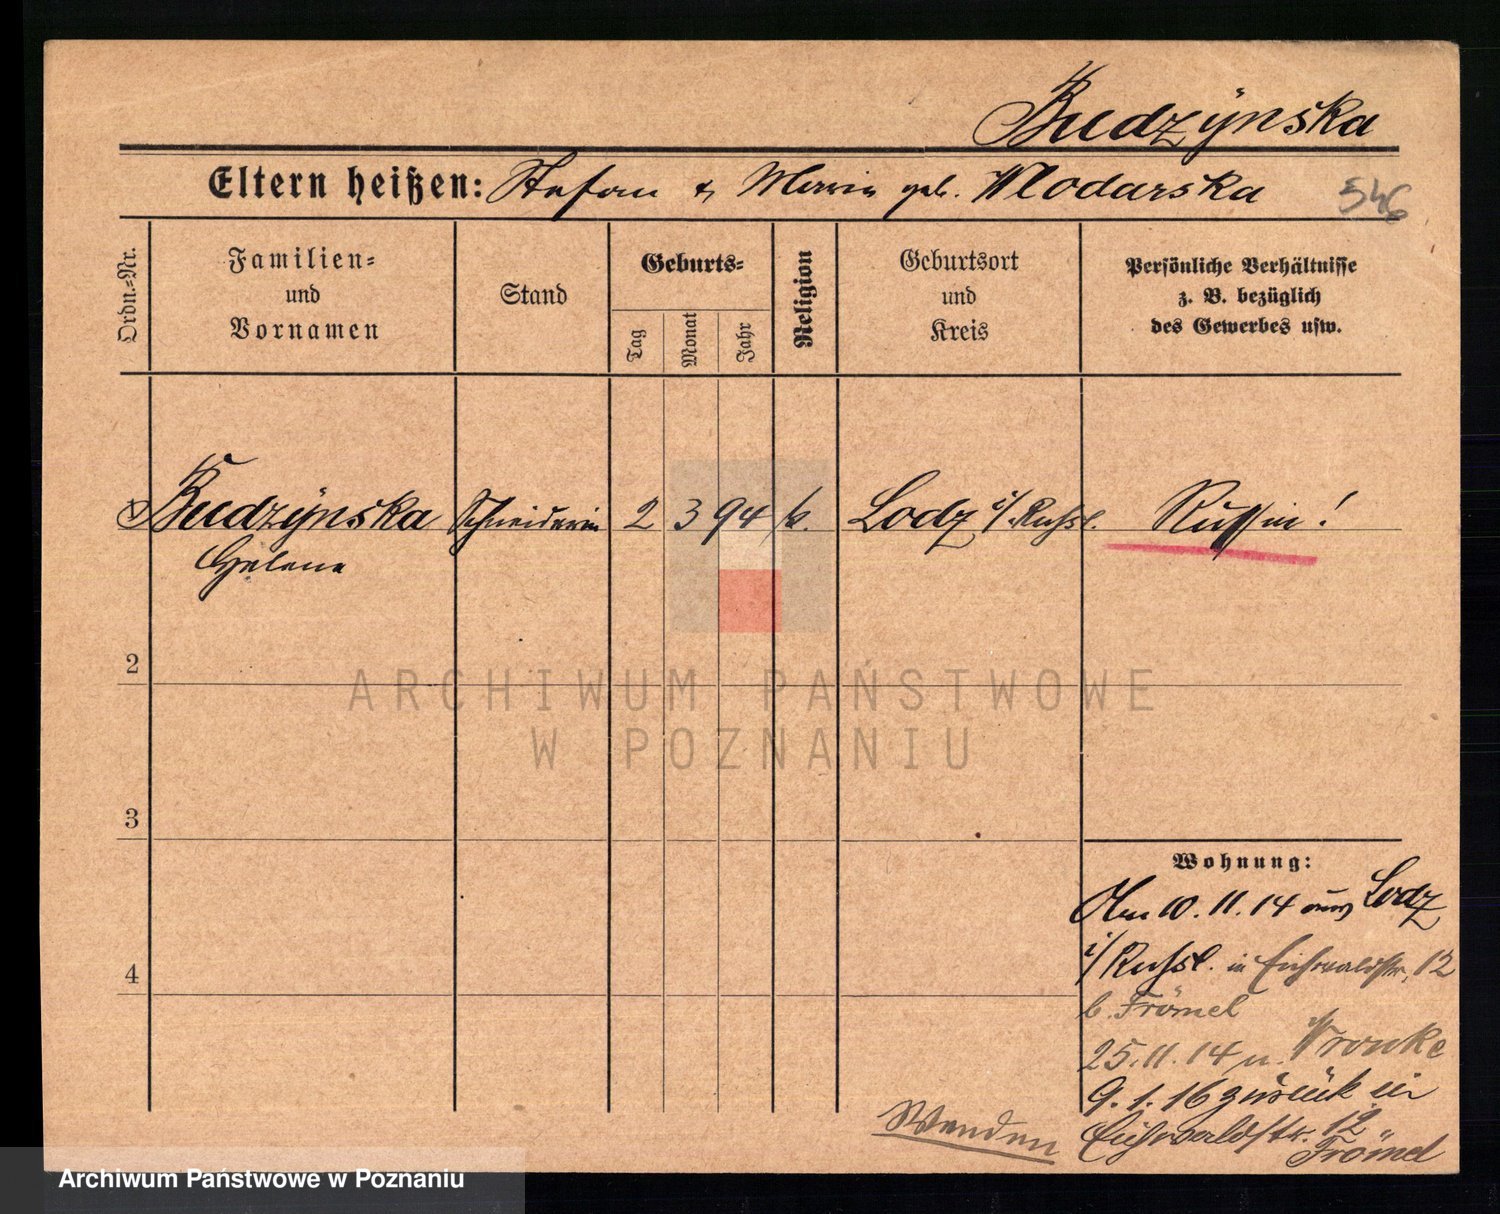 Budzÿnska
Eltern heißen: Stefan & Marie geb. Wlodarska 546
Ordn.-Nr.
Familien-
und
Vornamen
Stand
Geburts-
Tag
Monat
Jahr
Religion
Geburtsort
und
Kreis
Persönliche Verhältnisse
z. B. bezüglich
des Gewerbes usw.
1 Budzÿnska Schneiderin 2 3 94 k. Lodz i/Russl. Russin!
Helene
2
ARCHIWUM PAŃSTWOWE
W POZNANIU
3
4
Wohnung:
Am 10.11.14 aus Lodz
i/Russl. in Eichwaldstr. 12
b. Frömel
25.11.14 n. Wronke
9.1.16 zurück in
Eichwaldstr. 12
Frömel
Wenden
Archiwum Państwowe w Poznaniu